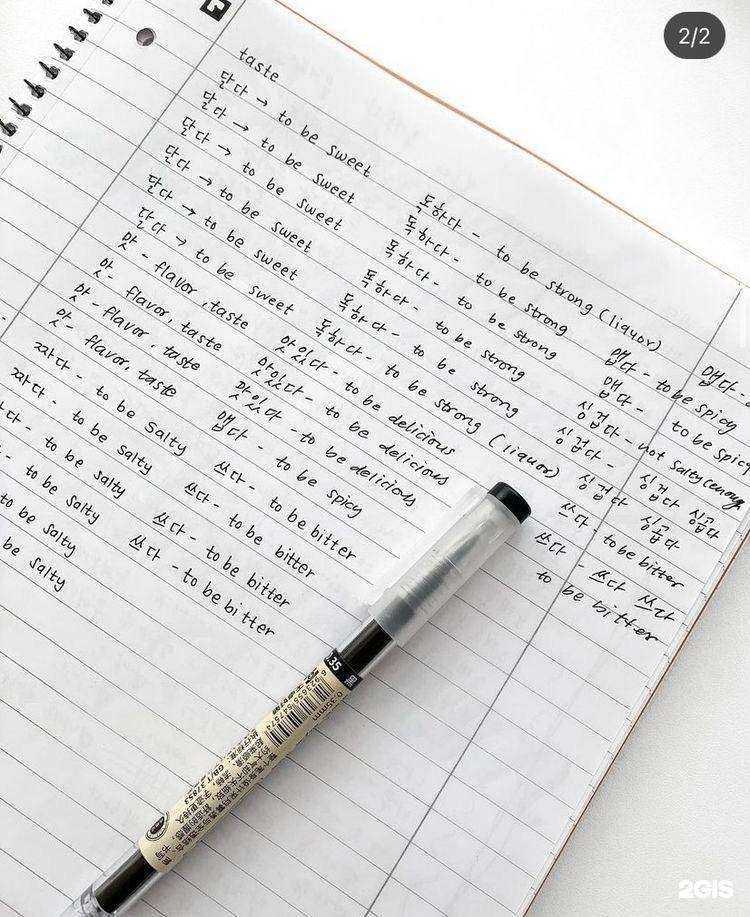 2/2
taste
달다 → to be sweet
달다 → to be sweet
달다 → to be sweet
달다 → to be sweet
달다 → to be sweet
달다 → to be sweet
맛 - flavor, taste
맛 - flavor, taste
맛 - flavor, taste
맛 - flavor, taste
짜다 - to be salty
짜다 - to be salty
다 - to be salty
- to be salty
to be salty
be salty
독하다 - to be strong (liquor)
독하다 - to be strong
독하다 - to be strong
독하다 - to be strong
독하다 - to be strong
독하다 - to be strong (liquor)
맛있다 - to be delicious
맛있다 - to be delicious
맛있다 - to be delicious
맵다 - to be spicy
쓰다 - to be bitter
쓰다 - to be bitter
쓰다 - to be bitter
쓰다 - to be bitter
맵다 - to be spicy
맵다 - to be spicy
싱겁다 - not salty
싱겁다 - 싱겁다 싱겁다
싱겁다 싱겁다
쓰다 to be bitter
쓰다 - 쓰다 쓰다
to be bitter
맵다 -
0.35mm
GB/T 37853
2GIS